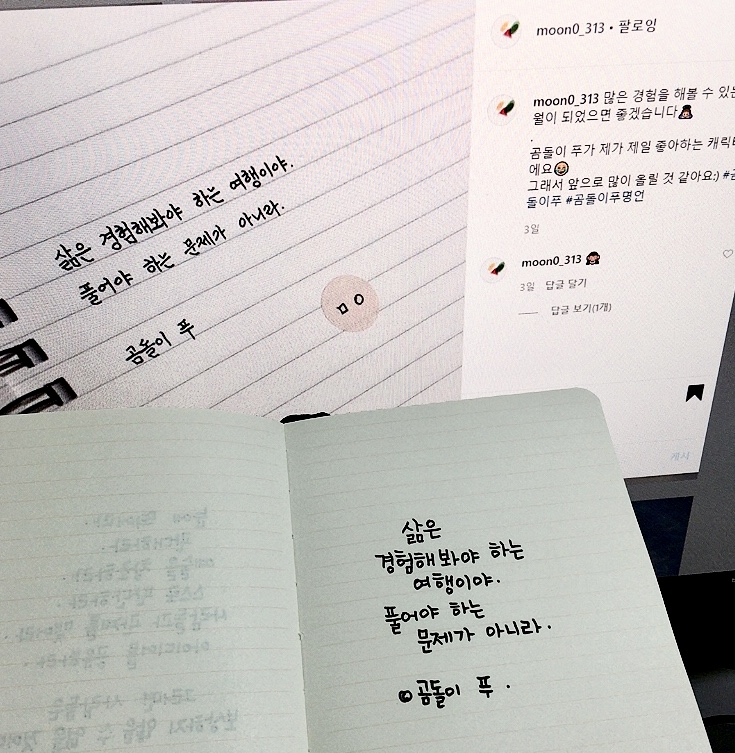 moon0_313 • 팔로잉
moon0_313 많은 경험을 해볼 수 있는
월이 되었으면 좋겠습니다
.
곰돌이 푸가 제가 제일 좋아하는 캐릭터
에요
그래서 앞으로 많이 올릴 것 같아요:) #곰
돌이푸 #곰돌이푸명언
3일
moon0_313
3일 답글 달기
답글 보기(1개)
게시
삶은 경험해봐야 하는 여행이야.
풀어야 하는 문제가 아니라.
곰돌이 푸
ㅁㅇ
삶은
경험해봐야 하는
여행이야.
풀어야 하는
문제가 아니라.
곰돌이 푸.